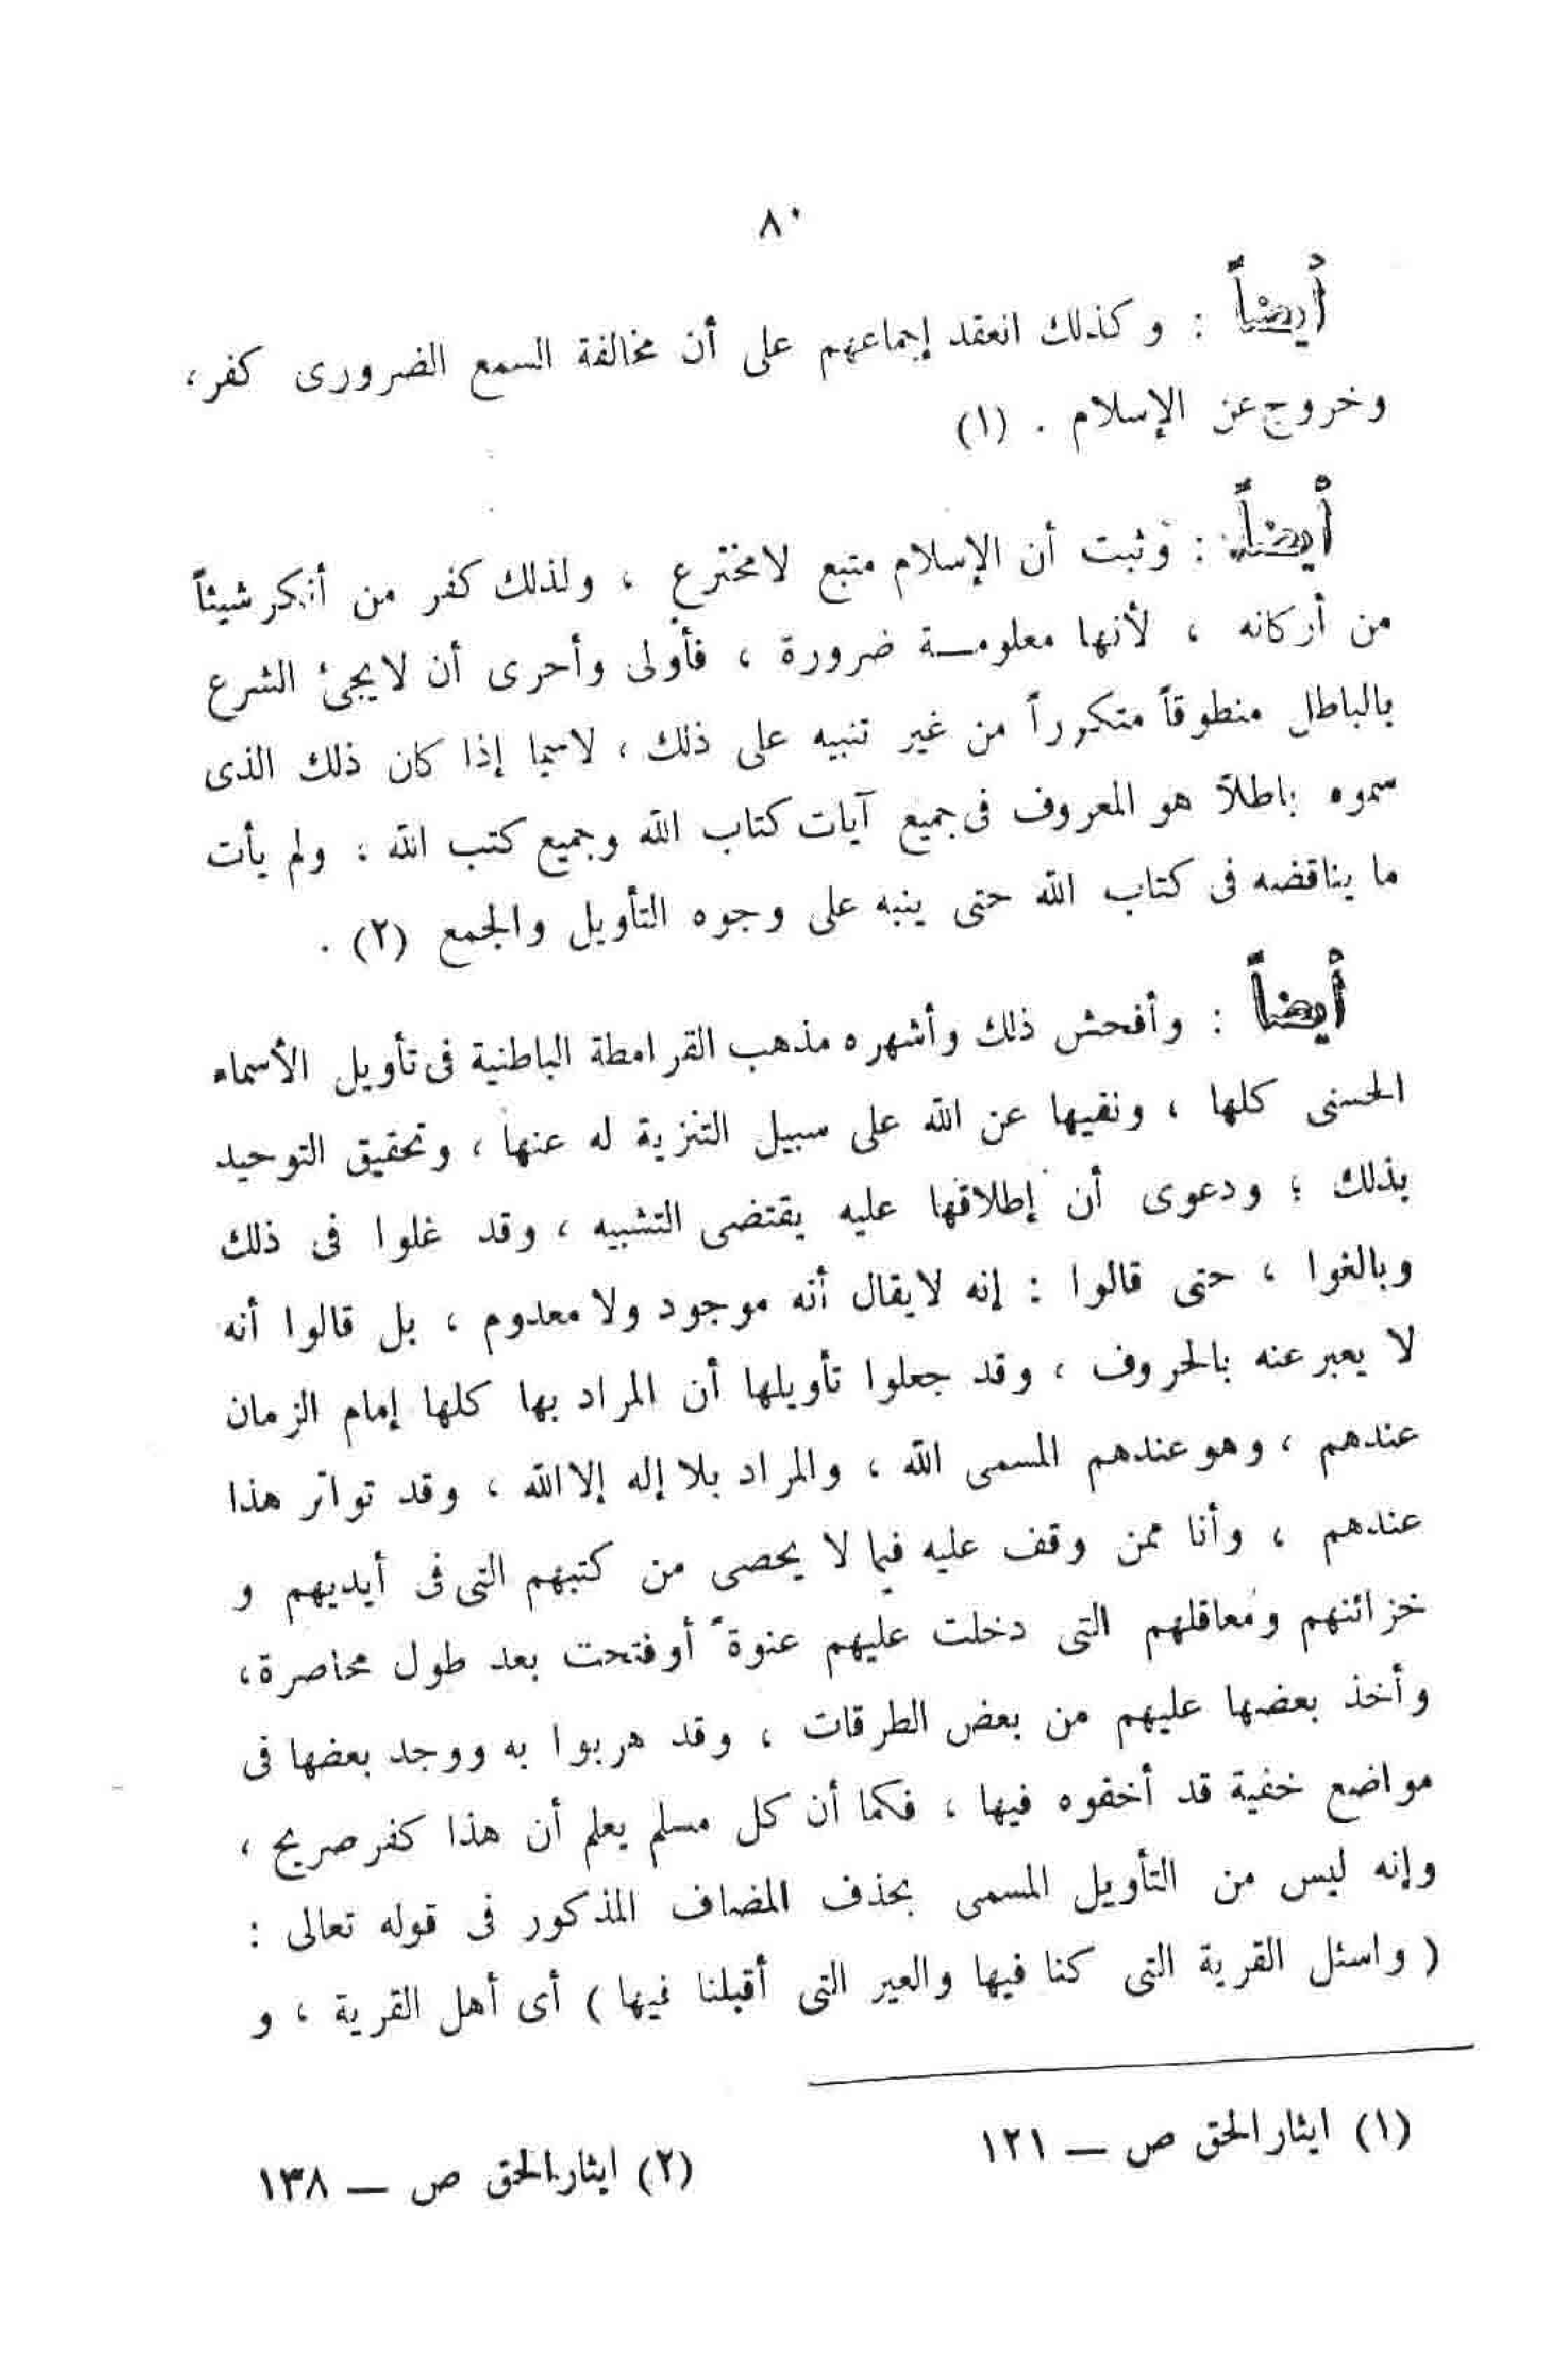 ٨٠
أيضاً : وكذلك انعقد إجماعهم على أن مخالفة السمع الضرورى كفر،
وخروج عن الإسلام . (١)
أيضاً : وثبت أن الإسلام متبع لامخترع ، ولذلك كفر من أنكر شيئاً
من أركانه ، لأنها معلومـــة ضرورة ، فأولى وأحرى أن لايجئ الشرع
بالباطل منطوقاً متكرراً من غير تنبيه على ذلك ، لاسيما إذا كان ذلك الذى
سموه باطلاً هو المعروف فى جميع آيات كتاب الله وجميع كتب الله ، ولم يأت
ما يناقضه فى كتاب الله حتى ينبه على وجوه التأويل والجمع (٢) .
أيضاً : وأفحش ذلك وأشهره مذهب القرامطة الباطنية فى تأويل الأسماء
الحسنى كلها ، ونفيها عن الله على سبيل التنزية له عنها ، وتحقيق التوحيد
بذلك ؛ ودعوى أن إطلاقها عليه يقتضى التشبيه ، وقد غلوا فى ذلك
وبالغوا ، حتى قالوا : إنه لايقال أنه موجود ولا معدوم ، بل قالوا أنه
لا يعبر عنه بالحروف ، وقد جعلوا تأويلها أن المراد بها كلها إمام الزمان
عندهم ، وهو عندهم المسمى الله ، والمراد بلا إله إلا الله ، وقد تواتر هذا
عندهم ، وأنا ممن وقف عليه فيما لا يحصى من كتبهم التى فى أيديهم و
خزائنهم ومعاقلهم التى دخلت عليهم عنوة ً أوفتحت بعد طول محاصرة،
وأخذ بعضها عليهم من بعض الطرقات ، وقد هربوا به ووجد بعضها فى
مواضع خفية قد أخفوه فيها ، فكما أن كل مسلم يعلم أن هذا كفر صريح ،
وإنه ليس من التأويل المسمى بحذف المضاف المذكور فى قوله تعالى :
( واسئل القرية التى كنا فيها والعير التى أقبلنا فيها ) أى أهل القرية ، و
(١) ايثار الحق ص — ١٢١
(٢) ايثار الحق ص — ١٣٨